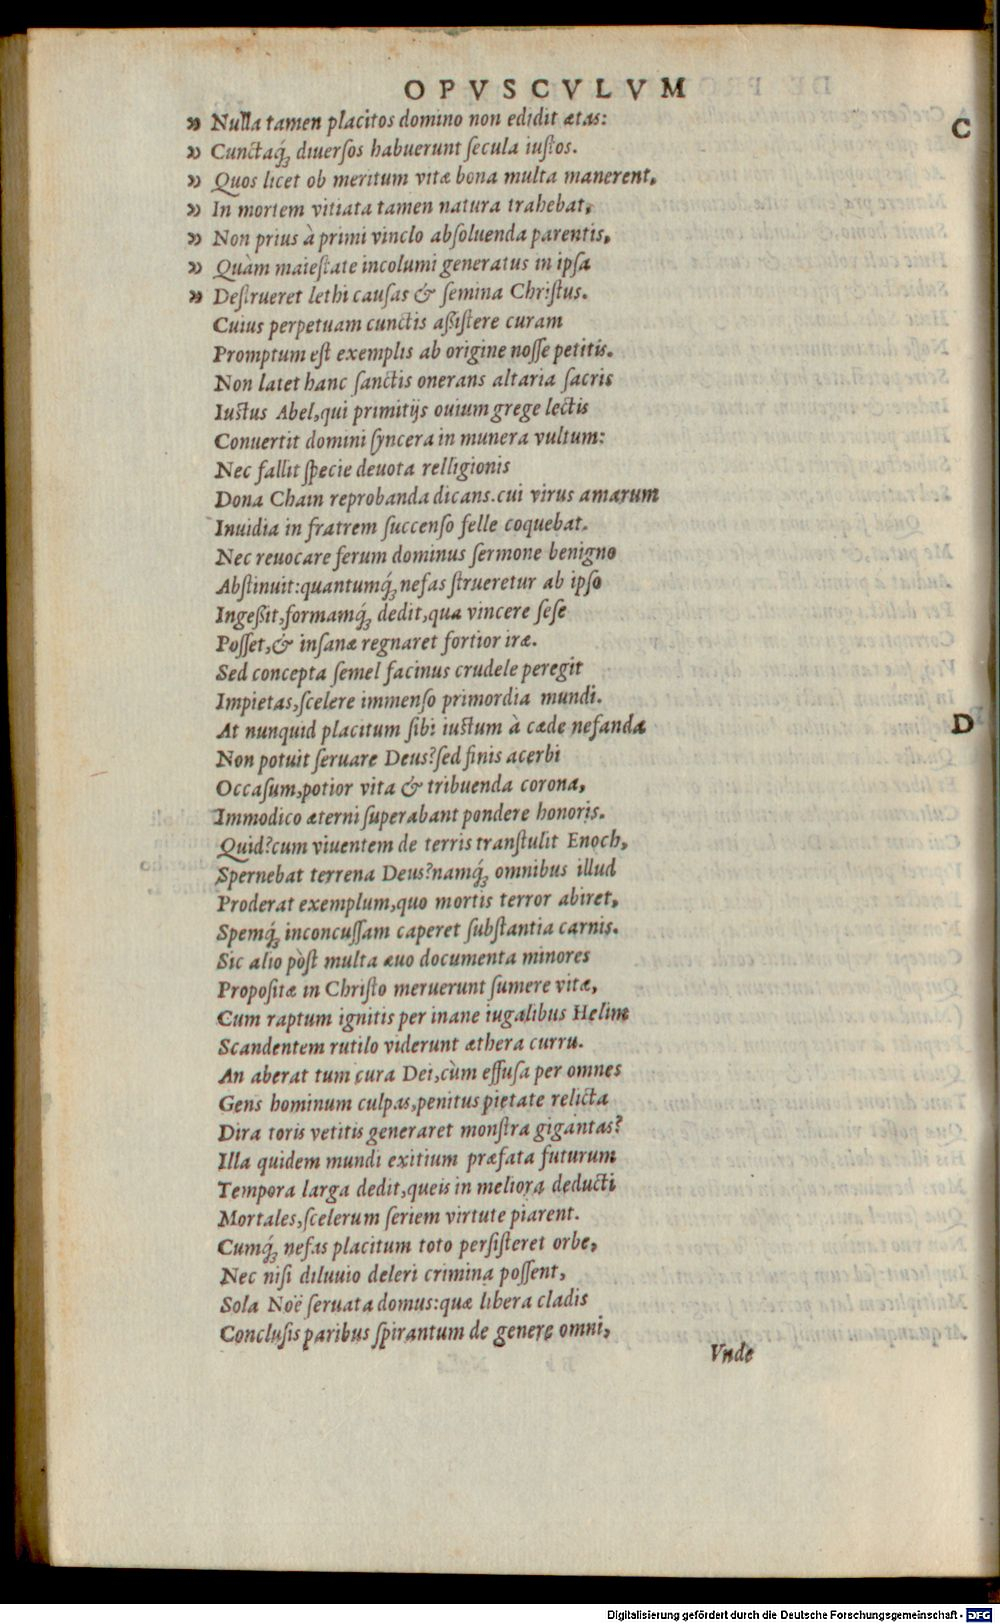 OPVSCVLVM
» Nulla tamen placitos domino non edidit ætas:
» Cunctaq́; diuersos habuerunt secula iustos.
» Quos licet ob meritum vitæ bona multa manerent,
» In mortem vitiata tamen natura trahebat,
» Non prius à primi vinclo absoluenda parentis,
» Quàm maiestate incolumi generatus in ipsa
» Destrueret lethi causas & semina Christus.
C
Cuius perpetuam cunctis aßistere curam
Promptum est exemplis ab origine nosse petitis.
Non latet hanc sanctis onerans altaria sacris
Iustus Abel, qui primitijs ouium grege lectis
Conuertit domini syncera in munera vultum:
Nec fallit specie deuota relligionis
Dona Chain reprobanda dicans. cui virus amarum
Inuidia in fratrem succenso felle coquebat.
Nec reuocare ferum dominus sermone benigno
Abstinuit: quantumq́; nefas strueretur ab ipso
Ingeßit, formamq́; dedit, qua vincere sese
Posset, & insanæ regnaret fortior iræ.
Sed concepta semel facinus crudele peregit
Impietas, scelere immenso primordia mundi.
At nunquid placitum sibi iustum à cæde nefanda
D
Non potuit seruare Deus? sed finis acerbi
Occasum, potior vita & tribuenda corona,
Immodico æterni superabant pondere honoris.
Quid? cum viuentem de terris transtulit Enoch,
Spernebat terrena Deus? namq́; omnibus illud
Proderat exemplum, quo mortis terror abiret,
Spemq́; inconcussam caperet substantia carnis.
Sic alio pòst multa æuo documenta minores
Propositæ in Christo meruerunt sumere vitæ,
Cum raptum ignitis per inane iugalibus Helim
Scandentem rutilo viderunt æthera curru.
An aberat tum cura Dei, cùm effusa per omnes
Gens hominum culpas, penitus pietate relicta
Dira toris vetitis generaret monstra gigantas?
Illa quidem mundi exitium præfata futurum
Tempora larga dedit, queis in meliora deducti
Mortales, scelerum seriem virtute piarent.
Cumq́; nefas placitum toto persisteret orbe,
Nec nisi diluuio deleri crimina possent,
Sola Noë seruata domus: quæ libera cladis
Conclusis paribus spirantum de genere omni,
Vnde
Digitalisierung gefördert durch die Deutsche Forschungsgemeinschaft - DFG